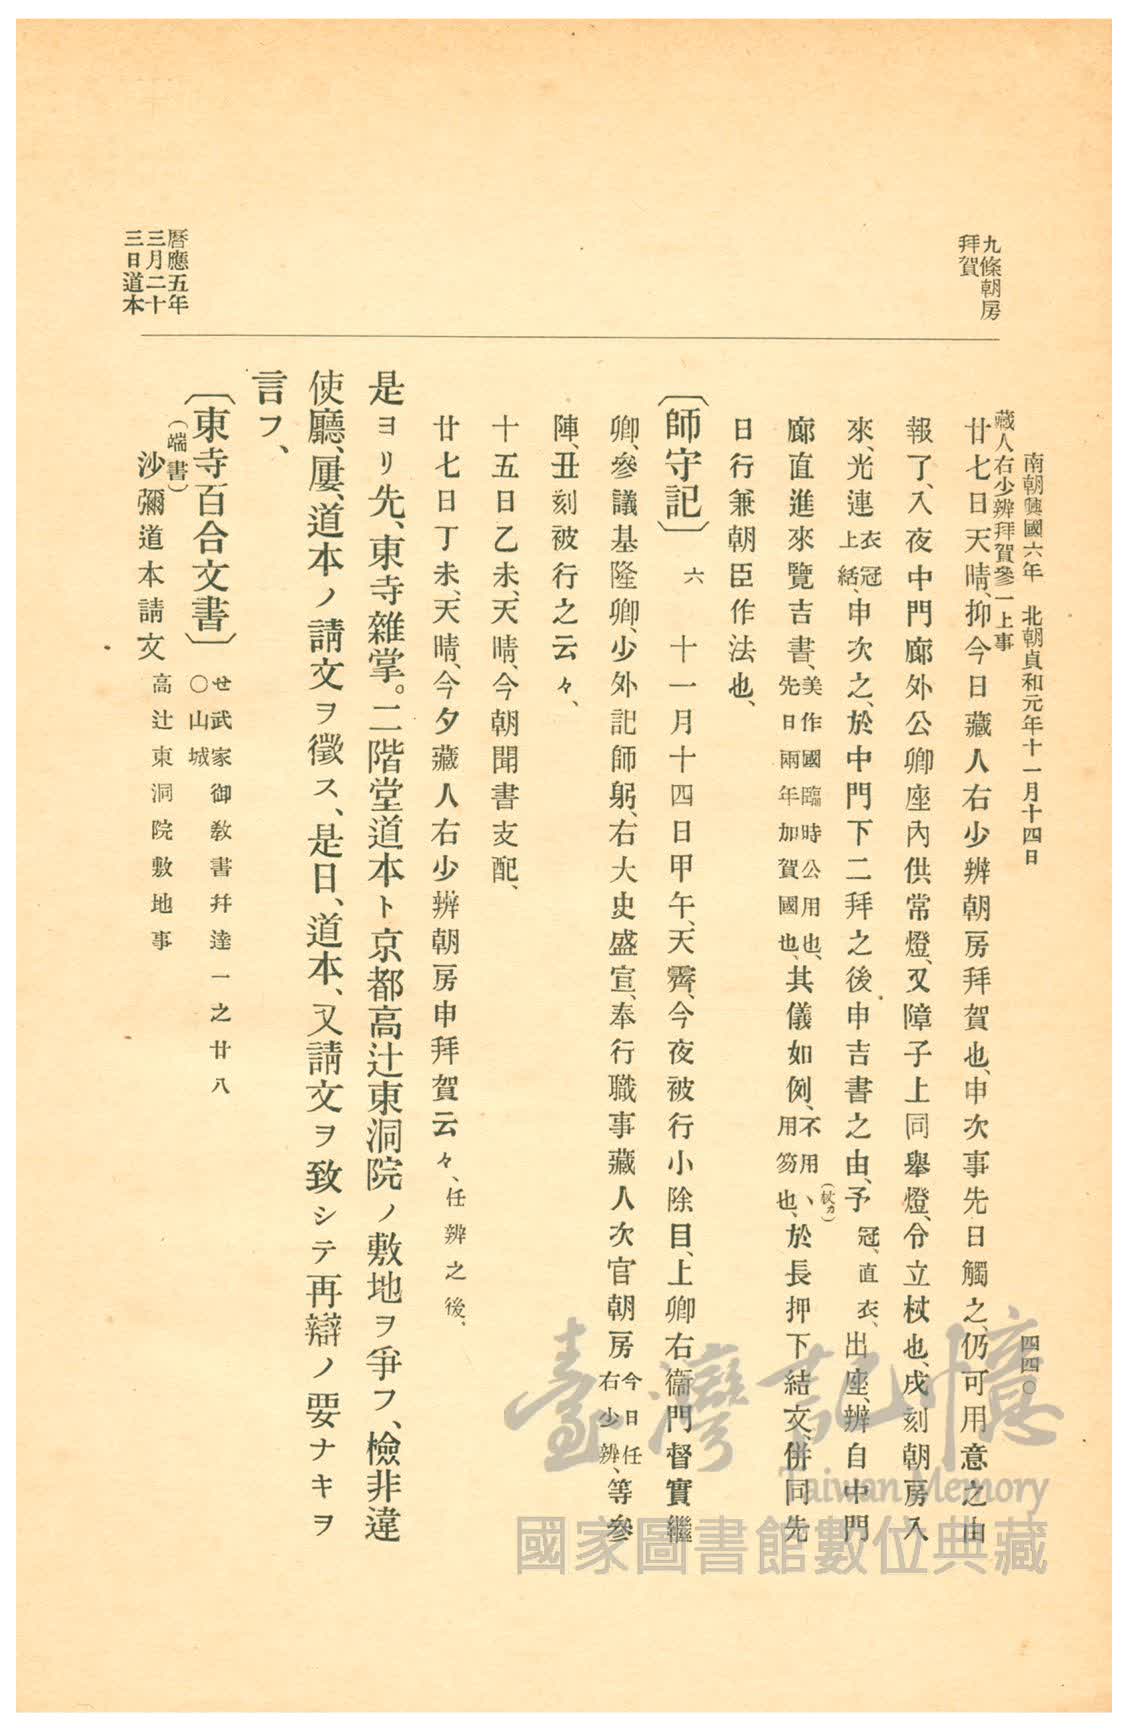 南朝興國六年 北朝貞和元年十一月十四日
四四〇
九條朝房
拜賀
藏人右少辨拜賀參一上事
廿七日天晴、抑今日藏人右少辨朝房拜賀也、申次事先日觸之、仍可用意之由
報了、入夜中門廊外公卿座內供常燈、又障子上同擧燈、令立杖也、戌刻朝房入
來、光連衣冠上結、申次之、於中門下二拜之後申吉書之由、予冠、直衣、出座、辨自中門
廊直進來覽吉書、美作國臨時公用也、先日兩年加賀國也、其儀如例、不用、(杖カ)用笏也、於長押下結文、併同先
日行兼朝臣作法也、
〔師守記〕 六 十一月十四日甲午、天霽、今夜被行小除目、上卿右衞門督實繼
卿、參議基隆卿、少外記師躬、右大史盛宣、奉行職事藏人次官朝房今日任右少辨、等參
陣、丑刻被行之云々、
十五日乙未、天晴、今朝聞書支配、
廿七日丁未、天晴、今夕藏人右少辨朝房申拜賀云々、任辨之後、
是ヨリ先、東寺雜掌。二階堂道本ト京都高辻東洞院ノ敷地ヲ爭フ、檢非違
使廳、屢、道本ノ請文ヲ徵ス、是日、道本、又請文ヲ致シテ再辯ノ要ナキヲ
言フ、
〔東寺百合文書〕 せ武家御敎書幷達一之廿八
〇山城
(端書)
沙彌道本請文 高辻東洞院敷地事
曆應五年
三月二十
三日道本
臺灣記憶
Taiwan Memory
國家圖書館數位典藏